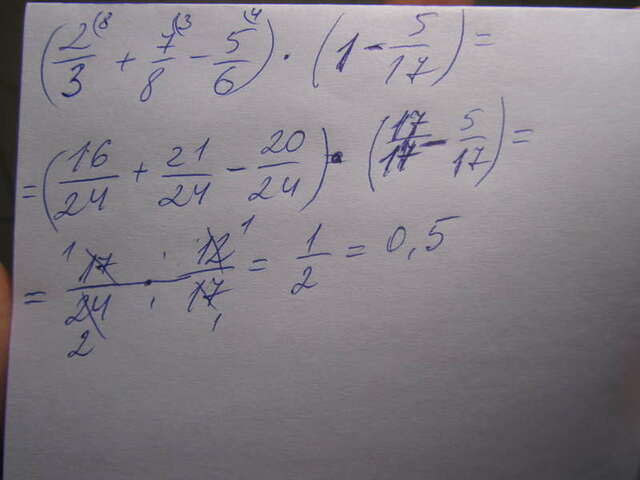 (2/3(8 + 7/8(3 - 5/6(4) · (1 - 5/17) =
= (16/24 + 21/24 - 20/24) · (17/17 - 5/17) =
= 17/24 · 12/17 = 1/2 = 0,5